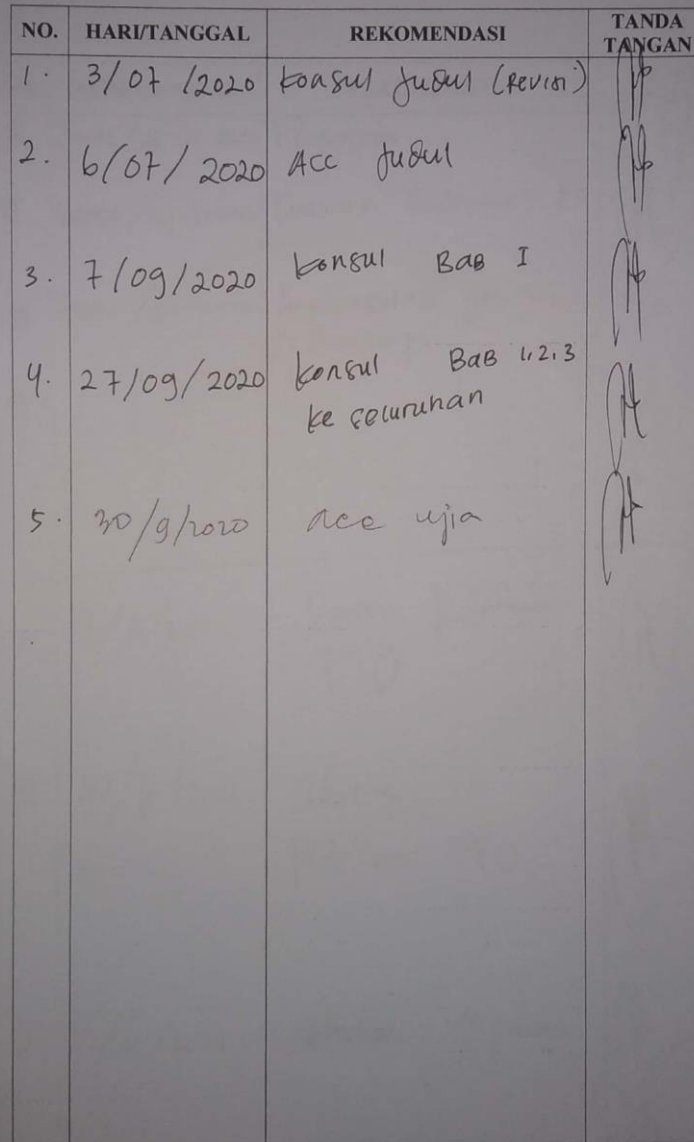 NO. HARI/TANGGAL REKOMENDASI TANDA TANGAN
1. 3/07/2020 Konsul Judul (Revisi)
2. 6/07/2020 Acc Judul
3. 7/09/2020 Konsul Bab I
4. 27/09/2020 Konsul Bab 1,2,3
ke seluruhan
5. 30/9/2020 acc ujia